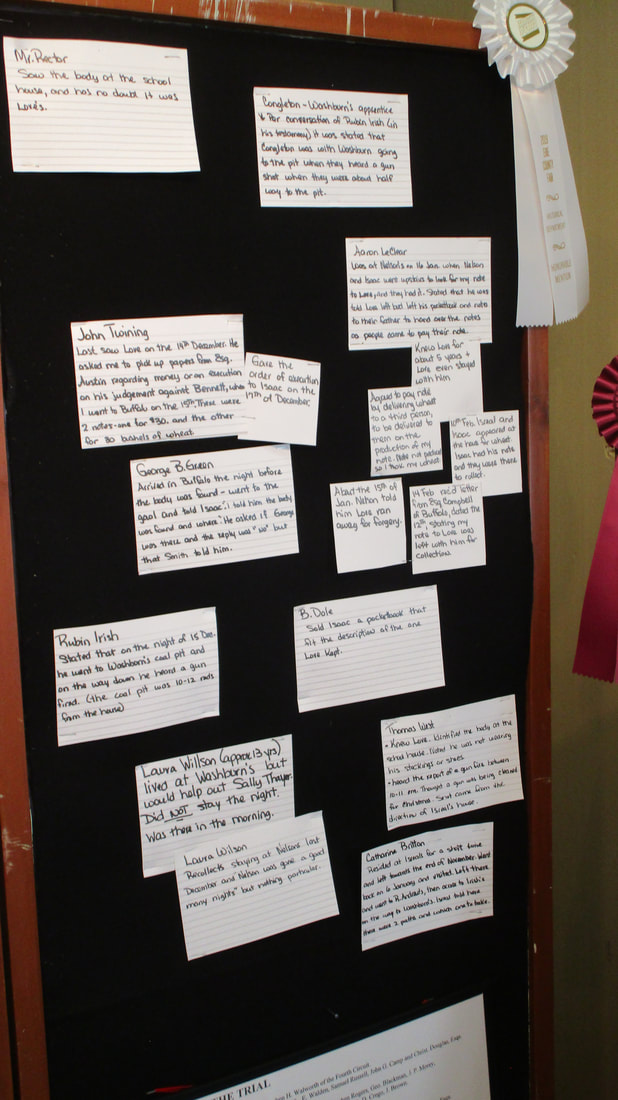 Mr. Rector
Saw the body at the school
house, and has no doubt it was
Love's.
Congleton - Washburn's apprentice
* Per conversation of Rubin Irish (in
his testimony) it was stated that
Congleton was with Washburn going
to the pit when they heard a gun
shot when they were about half
way to the pit.
Aaron LeClear
Was at Nelson's on 16 Jan. when Nelson
and Isaac were upstairs to look for my note
to Love, and they had it. Stated that he was
told Love left but left his pocketbook and notes
to their father to hand over the notes
as people came to pay their note.
Knew Love for
about 5 years +
Love even stayed
with him
Agreed to pay note
by delivering wheat
to a third person,
to be delivered to
them on the
production of my
note. Note not produced
so I took my wheat
10th Feb. Israel and
Isaac appeared at
the house for wheat.
Isaac had his note
and they were there
to
About the 15th of
Jan. Nelson told
him Love ran
away for forgery.
14 Feb rec'd letter
from Esq Campbell
of Buffalo, dated the
12th, stating my
note to Love was
left with him for
collection.
John Twining
Last saw Love on the 14th December. He
asked me to pick up papers from Esq.
Austin regarding money or an execution
on his judgement against Bennett, when
I went to Buffalo on the 15th. There were
2 notes - one for $30. and the other
for 30 bushels of wheat.
Gave the
order of execution
to Isaac on the
17th of December,
George B. Green
Arrived in Buffalo the night before
the body was found - went to the
gaol and told Isaac. I told him the body
was found and where. He asked if George
was there and the reply was "no" but
that Smith told him.
Rubin Irish
Stated that on the night of 15 Dec.
he went to Washburn's coal pit and
on the way down he heard a gun
fired. (the coal pit was 10-12 rods
from the house)
B. Dole
Sold Isaac a pocketbook that
fit the description of the one
Love kept.
Laura Willson (approx 13 yrs)
lived at Washburn's but
would help out Sally Thayer.
Did NOT stay the night.
Was there in the morning.
Laura Wilson
Recollects staying at Nelsons' last
December and Nelson was gone "a good
many nights" but nothing particular.
Thomas West
• Knew Love. Identified the body at the
school house. Noted he was not wearing
his stockings or shoes.
• heard the report of a gun fire between
10-11 PM. Thought a gun was being cleaned
for Christmas. Sound came from the
direction of Israel's house.
Catharine Britton
Resided at Israels for a short time
and left towards the end of November. Went
back on 6 January and visited. Left there
and went to
on the way to Washburn's. Israel told how
there were 2 paths and which one to take.
THE TRIAL
H. Walworth of the Fourth Circuit
E. Walden, Samuel Russell, John G. Camp and Christ. Douglas, Esqs.
Rogers, Geo. Hinckman, J. P.
Crage, J. Brown,
ERIE
COUNTY
FAIR
HISTORICAL
DEPARTMENT
HONORABLE
MENTION